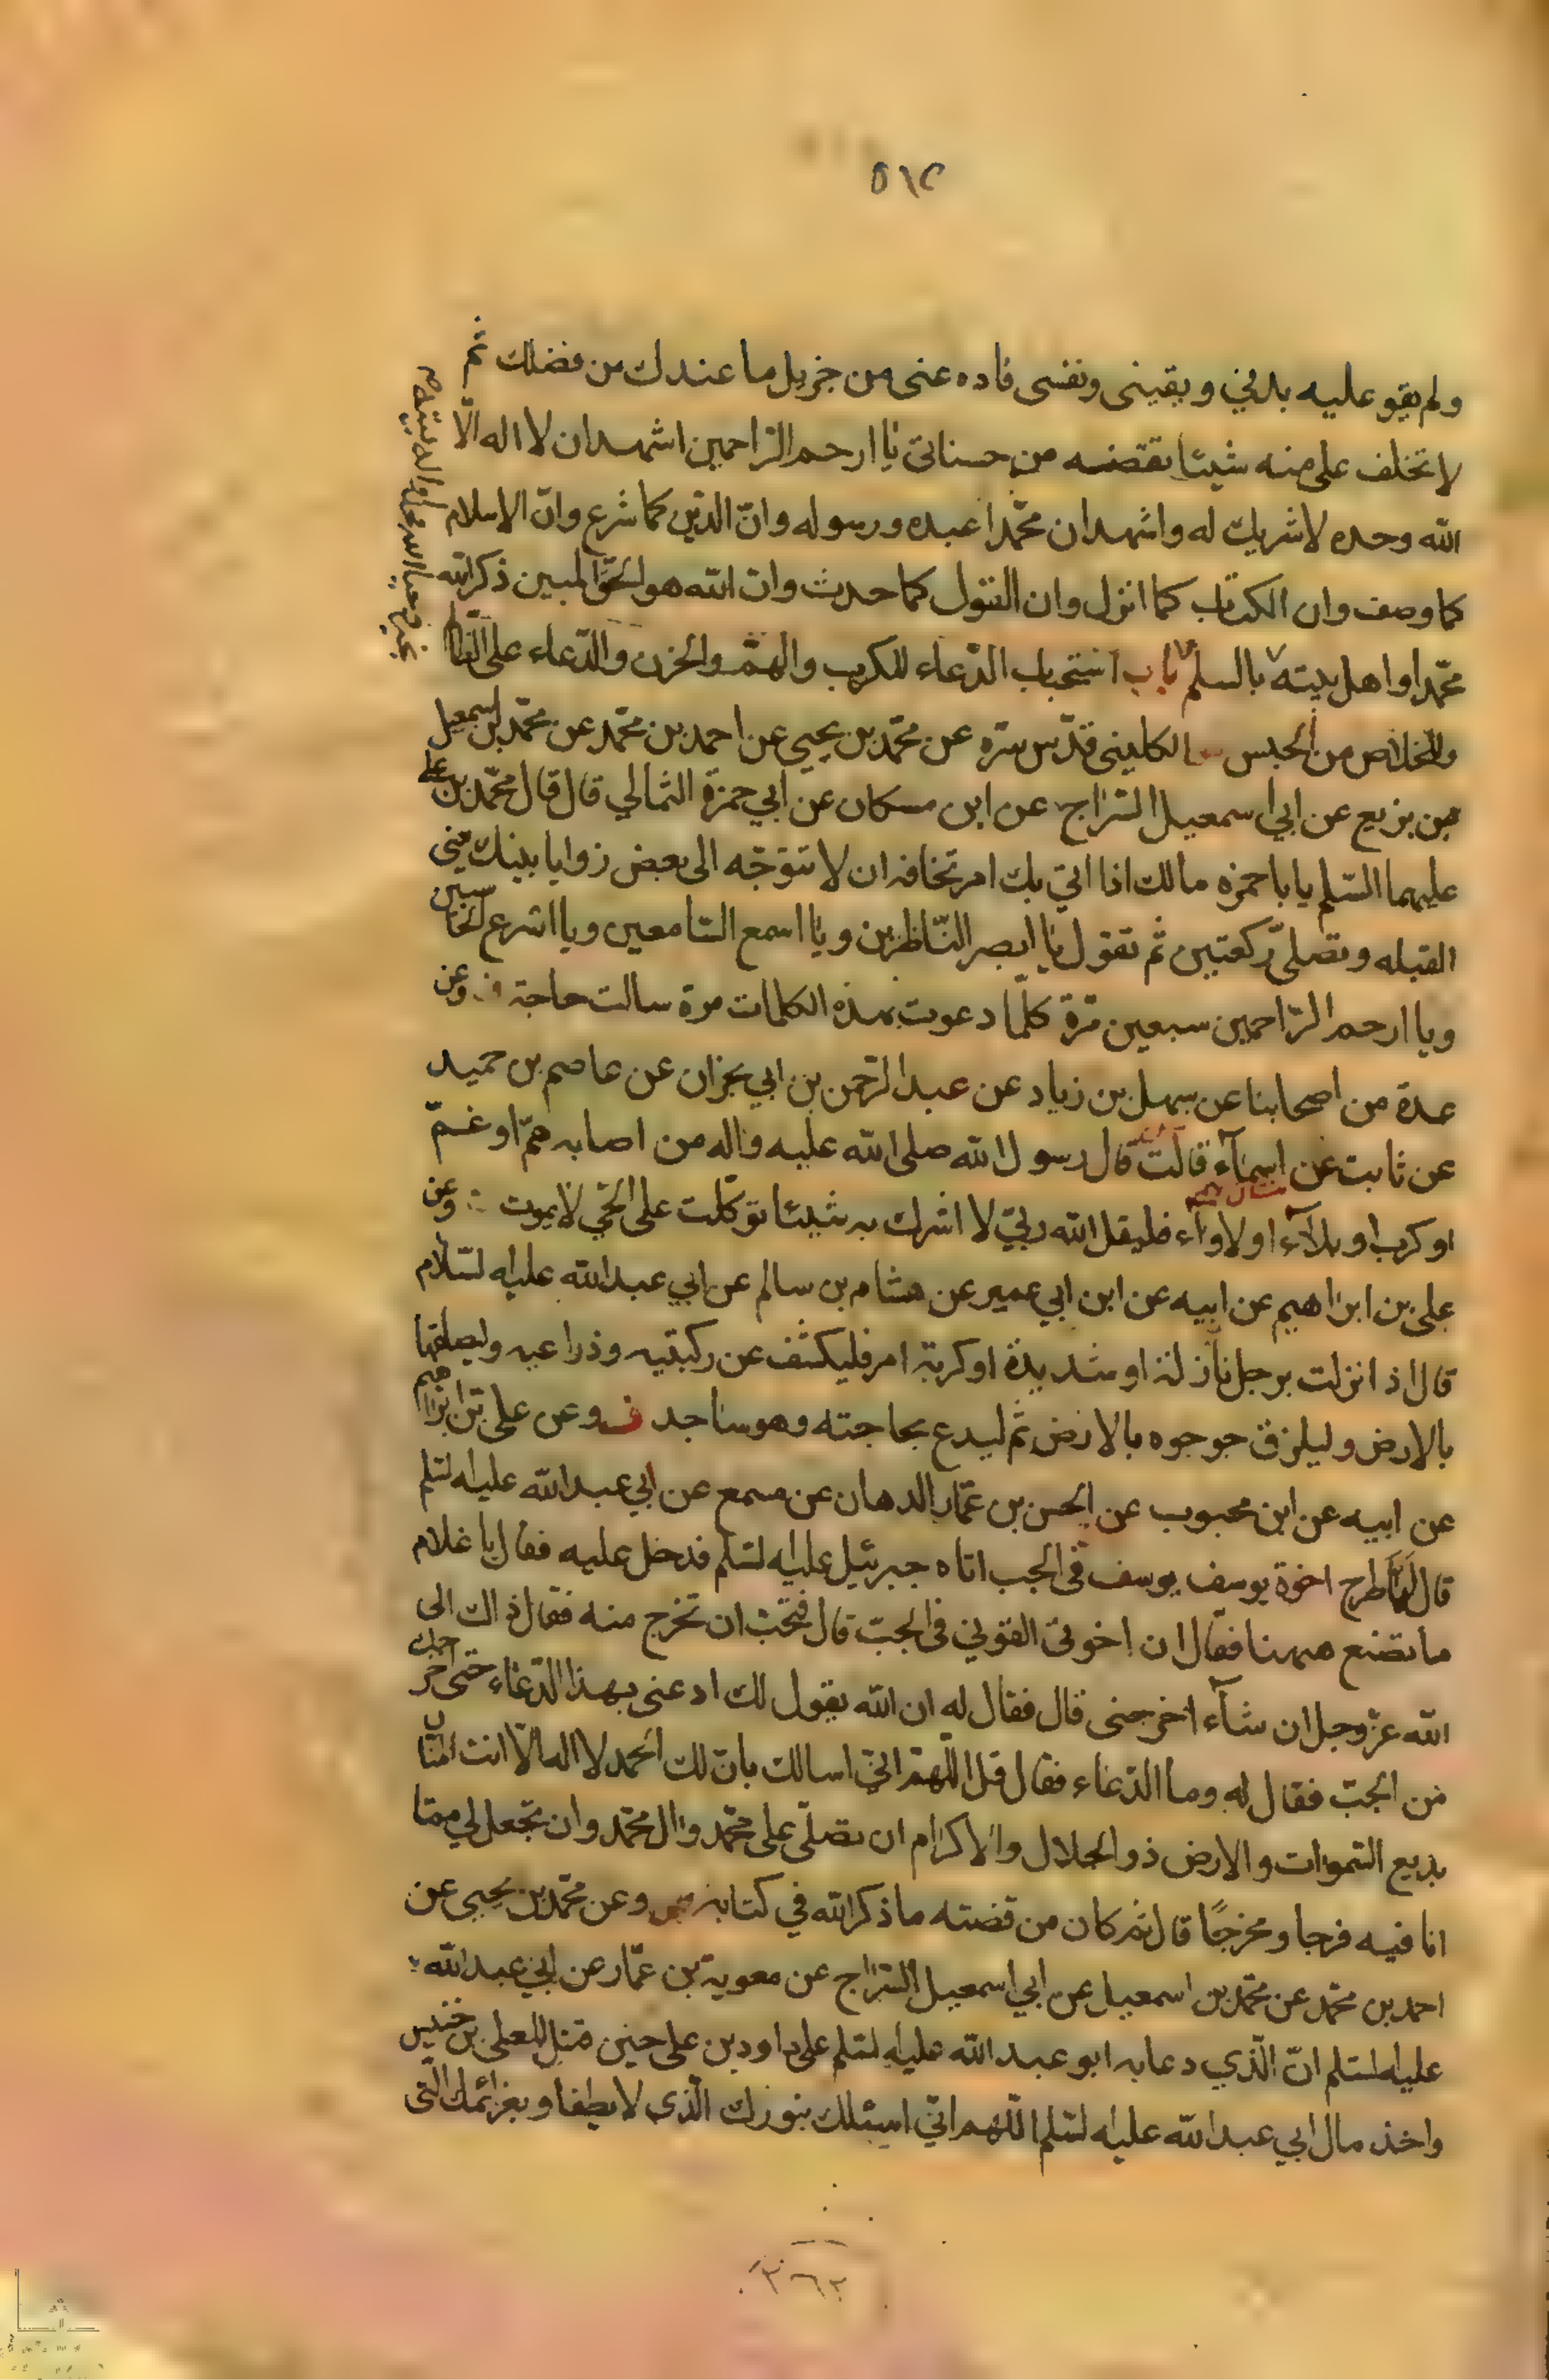 ٥١٢
ولم يقو عليه بدني و يقيني ونفسي فاده عنى من جزيل ما عندك من فضلك ثم
لا تخلف على منه شيئا تقتضيه من حسناتى يا ارحم الراحمين اشهد ان لا اله الّا
الله وحده لا شريك له واشهد ان محمّدا عبده و رسوله وانّ الدّين كما شرع وانّ الاسلام
كما وصف وان الكتاب كما انزل وان القول كما حدث وان الله هو الحقّ المبين ذكر الله
محمّدا و اهل بيته بالسلم باب استحباب الدّعاء للكرب والهمّ والحزن والدّعاء على
والخلاص من الحبس الكلينى قدّس سرّه عن محمّد بن يحيى عن احمد بن محمّد عن محمّد بن اسمعيل
بن بزيع عن ابي اسمعيل السّراج عن ابن مسكان عن ابي حمزة الثمالي قال قال محمّد بن على
عليهما السّلم يا با حمزه مالك اذا اتى بك امر تخافه ان لا تتوجّه الى بعض زوايا بيتك يعنى
القبله وتصلى ركعتين ثم تقول يا ابصر النّاظرين و يا اسمع السّامعين ويا اسرع الحاسبين
ويا ارحم الرّاحمين سبعين مرّة كلّما دعوت بهذه الكلمات مرة سالت حاجة وعن
عدة من اصحابنا عن سهل بن زياد عن عبد الرّحمن بن ابي نجران عن عاصم بن حميد
عن ثابت عن اسمآء قالت قال رسول الله صلى الله عليه واله من اصابه همّ او غمّ
او كرب او بلآء او لاوآء فليقل الله ربّي لا اشرك به شيئا توكّلت على الحيّ لا يموت وعن
على بن ابراهيم عن ابيه عن ابن ابي عمير عن هشام بن سالم عن ابي عبد الله عليه لسّلام
قال اذ انزلت برجل نازلة او شديدة او كربة امر فليكشف عن ركبتيه و ذراعيه وليصلقها
بالارض وليلزق جوجوه بالارض ثم ليدع بحاجته وهو ساجد وعن على بن ابراهيم
عن ابيه عن ابن محبوب عن الحسن بن عمّار الدهان عن مسمع عن ابي عبد الله عليه لسّلم
قال لمّا طرح اخوة يوسف يوسف فى الجب اتاه جبرئيل عليه لسّلم فدخل عليه فقال يا غلام
ما تصنع هيهنا فقال ان اخوتى القونى فى الجبّ قال فتحبّ ان تخرج منه فقال ذاك الى
الله عزّ وجل ان شآء اخرجنى قال فقال له ان الله يقول لك ادعنى بهذا الدّعاء حتى اخرجك
من الجبّ فقال له وما الدّعاء فقال قل اللّهمّ انّي اسالك بانّ لك الحمد لا اله الّا انت المنّان
بديع السّموات و الارض ذو الجلال والاكرام ان تصلّى على محمّد وال محمّد وان تجعل لي ممّا
انا فيه فرجا و مخرجًا قال ثم كان من قصّته ما ذكر الله في كتابه وعن محمّد بن يحيى عن
احمد بن محمّد عن محمّد بن اسمعيل عن ابي اسمعيل السّراج عن معوية بن عمّار عن ابي عبد الله
عليه لسّلم انّ الّذي دعا به ابو عبد الله عليه لسّلم على داود بن على حين قتل المعلى بن خنيس
واخذ مال ابي عبد الله عليه لسّلم اللّهم انّي اسئلك بنورك الّذى لا يطفا و بعزائمك الّتى